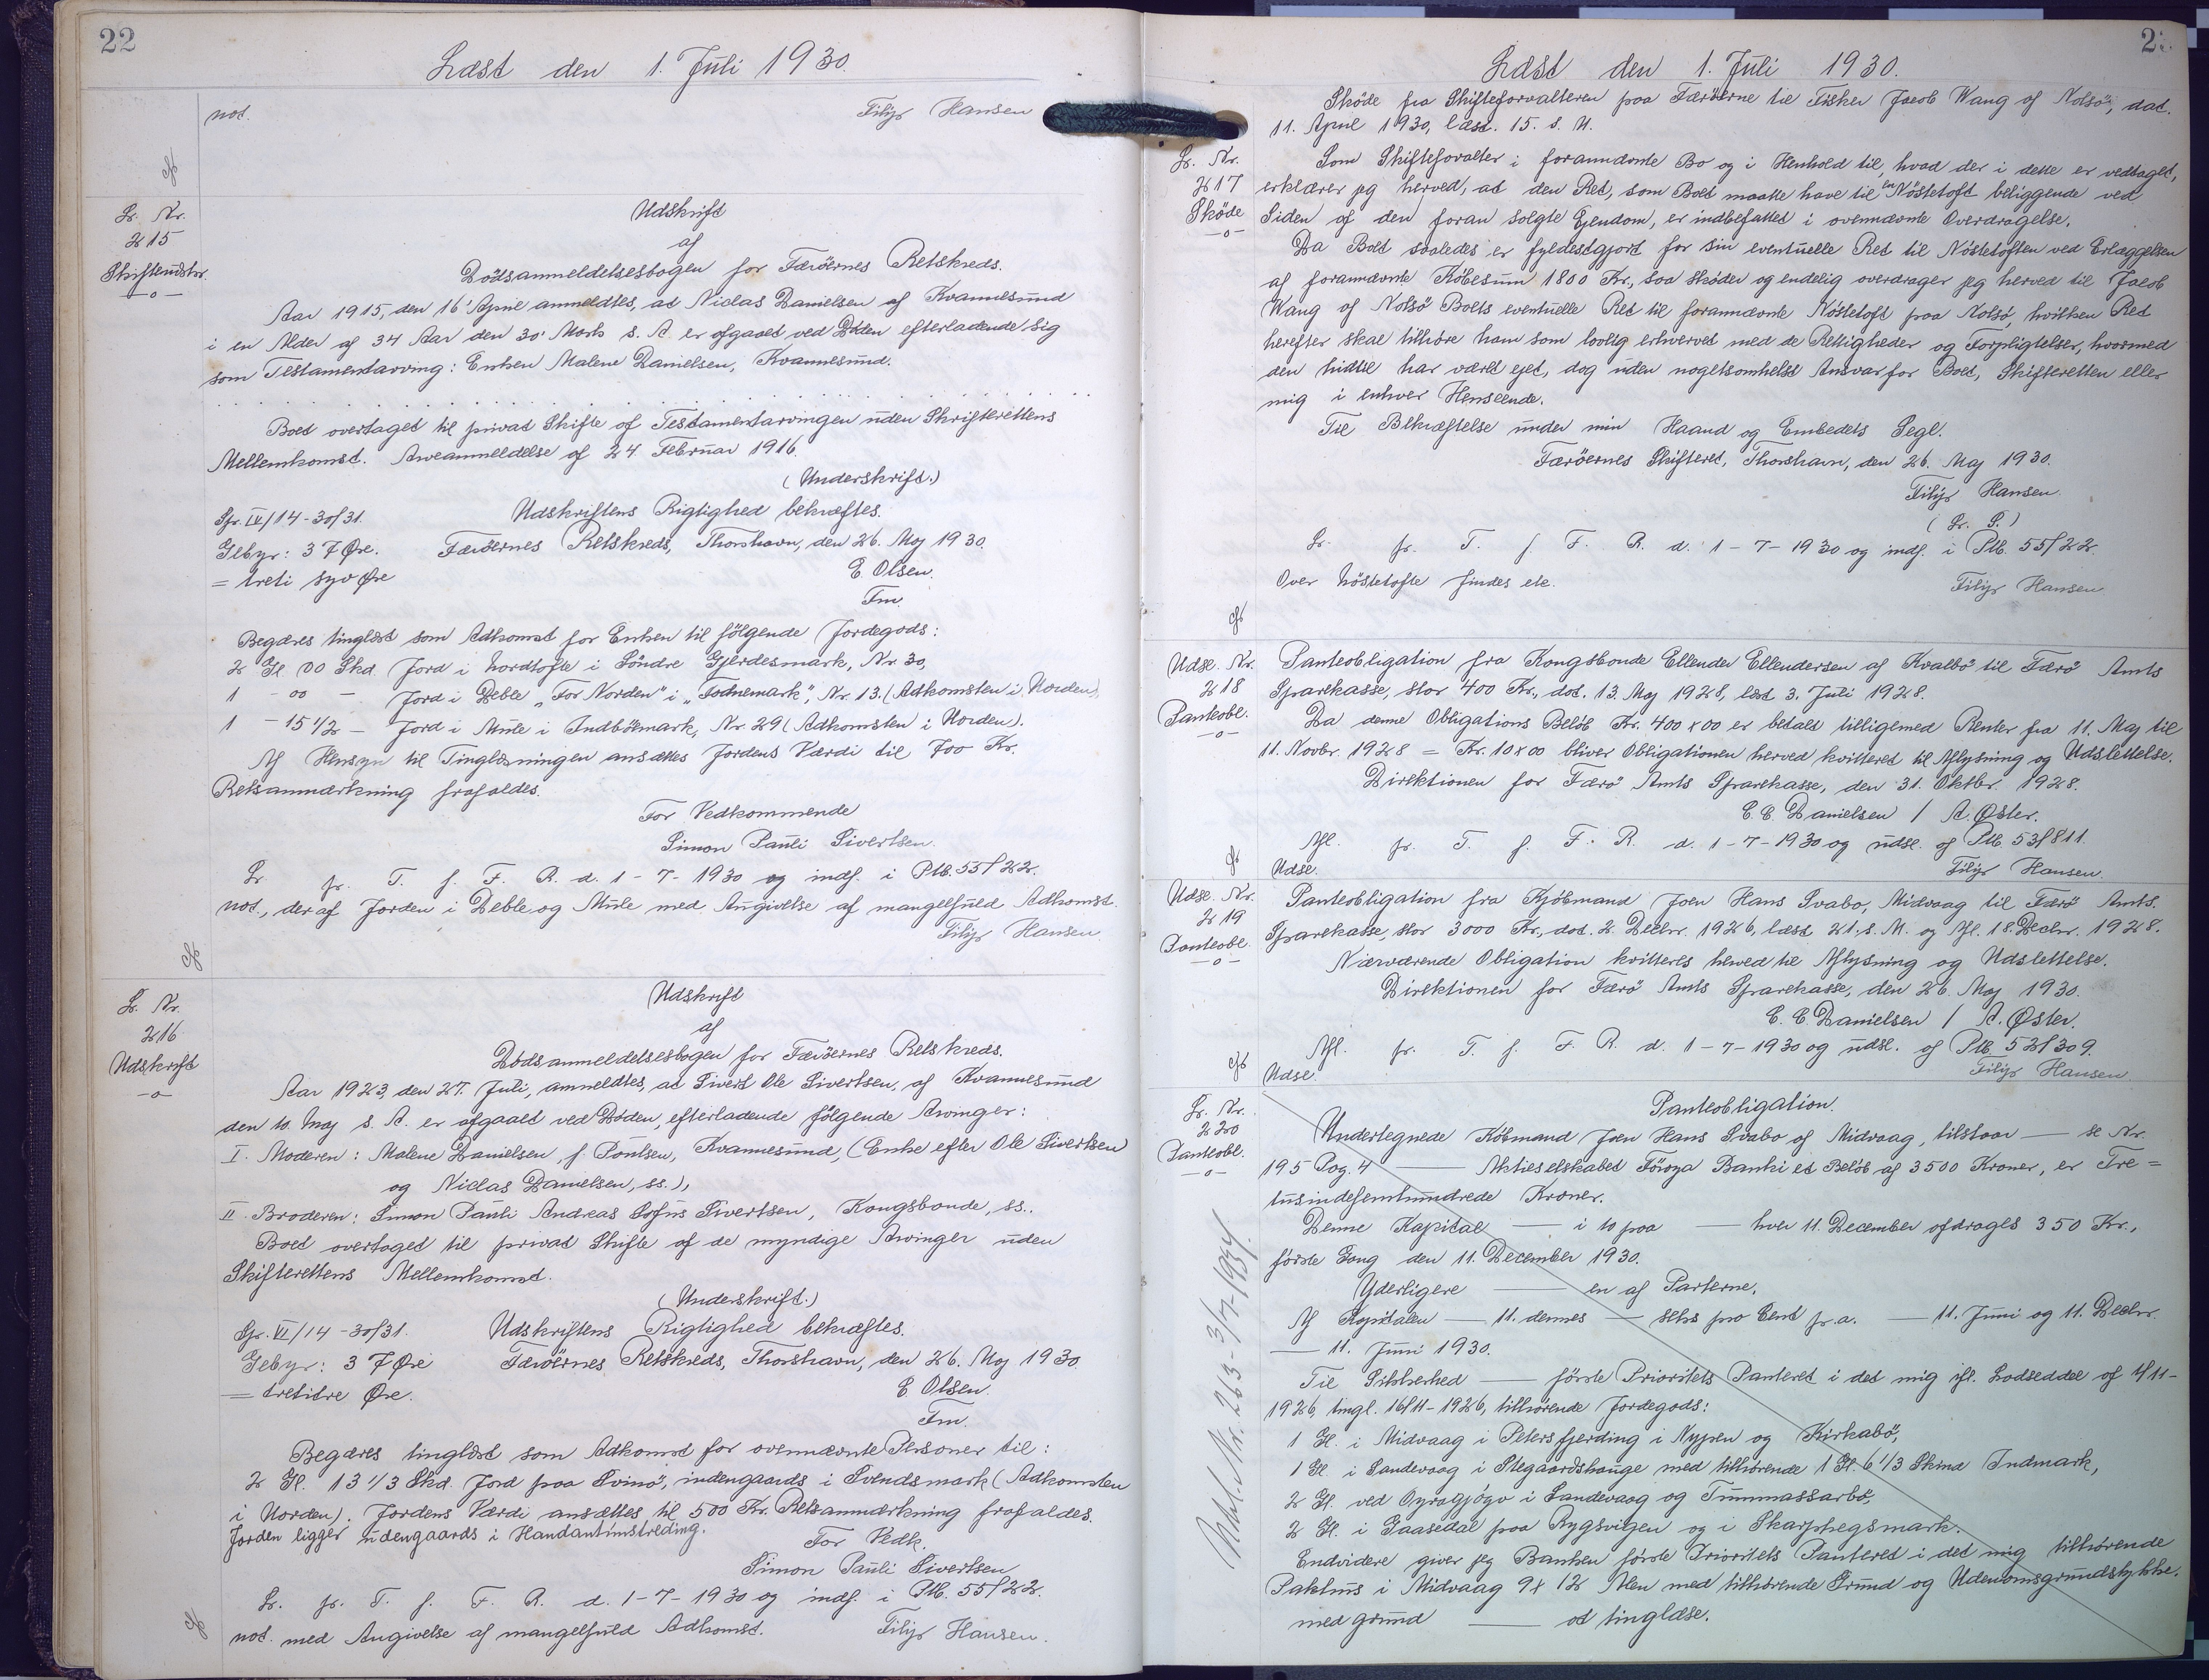 22
Læst den 1. Juli 1930.
not. Filip Hansen
Lr. Nr.
215
Skifteudskr.
Udskrift
af
Dödsanmeldelsesbogen for Færöernes Retskreds.
Aar 1915, den 16' April anmeldtes, at Niclas Danielsen af Kvannesund
i en Alder af 34 Aar den 30' Marts s. A. er afgaaet ved Döden efterladende sig
som Testamentarving: Enken Malene Danielsen, Kvannesund.
Boet overtaget til privat Skifte af Testamentarvingen uden Skrifterettens
Mellemkomst. Arveanmeldelse af 24 Februar 1916.
(Underskrift.)
Spr. IV/14-30/31. Udskriftens Rigtighed bekræftes.
Gebyr: 37 Øre. Færöernes Retskreds, Thorshavn, den 26. Maj 1930.
= treti syv Øre E. Olsen.
Fm.
Begæres tinglæst som Adkomst for Enken til fölgende Jordegods:
2 Gl. 00 Skd. Jord i Nordtofte i Söndre Gjerdesmark, Nr. 30,
1 - 00 - Jord i Deble „For Norden" i „Fodnemark", Nr. 13. (Adkomsten i Uorden),
1 - 15 1/2 - Jord i Mule i Indbömark, Nr. 29 (Adkomsten i Uorden).
Af Hensyn til Tinglæsningen ansættes Jordens Værdi til 700 Kr.
Retsanmærkning frafaldes.
For Vedkommende
Simon Pauli Sivertsen.
Lr. pr. T. f. F. R. d. 1-7-1930 og indf. i Ptb. 55/22.
not., der af Jorden i Deble og Mule med Angivelse af mangelfuld Adkomst.
Filip Hansen.
Lr. Nr.
216
Udskrift
Udskrift
af
Dödsanmeldelsesbogen for Færöernes Retskreds.
Aar 1923, den 27. Juli, anmeldtes, at Sivert Ole Sivertsen, af Kvannesund
den 10. Maj s. A. er afgaaet ved Döden, efterladende fölgende Arvinger:
I. Moderen: Malene Danielsen, f. Poulsen, Kvannesund, (Enke efter Ole Sivertsen
og Niclas Danielsen, ss.),
II. Broderen: Simon Pauli Andreas Sofus Sivertsen, Kongsbonde, ss..
Boet overtaget til privat Skifte af de myndige Arvinger uden
Skifterettens Mellemkomst.
(Underskrift.)
Spr. VI/14-30/31. Udskriftens Rigtighed bekræftes.
Gebyr: 37 Øre Færöernes Retskreds, Thorshavn, den 26. Maj 1930
= Øre. E Olsen.
Fm.
Begæres tinglæst som Adkomst for ovennævnte Personer til:
2 Gl. 13 1/3 Skd. Jord paa Svinö, indengaards i Svendsmark (Adkomsten
i Uorden). Jordens Værdi ansættes til 500 Kr. Retsanmærkning frafaldes.
Jorden ligger udengaards i
For Vedk.
Simon Pauli Sivertsen
Lr. pr. T. f. F. R. d. 1-7-1930 og indf. i Ptb. 55/22.
not. med Angivelse af mangelfuld Adkomst. Filip Hansen.
Læst den 1. Juli 1930.
Sköde fra Skifteforvalteren paa Færöerne til Fisker Jacob Wang af Nolsö, dat.
11. April 1930, læst. 15. s. M.
Lr. Nr.
217
Sköde
Som Skifteforvalter i forannævnte Bo og i Henhold til, hvad der i dette er vedtaget,
erklærer jeg herved, at den Ret, som Boet maatte have til en Nöstetoft beliggende ved
Siden af den foran solgte Ejendom, er indbefattet i ovennævnte Overdragelse.
Da Boet saaledes er fyldestgjort for sin eventuelle Ret til Nöstetoften ved Erlæggelsen
af forannævnte Köbesum 1800 Kr., saa sköder og endelig overdrager jeg herved til Jacob
Wang af Nolsö Boets eventuelle Ret til forannævnte Nöstetoft paa Nolsö, hvilken Ret
herefter skal tilhöre ham som lovlig erhvervet med de Rettigheder og Forpligtelser, hvormed
den hidtil har været ejet, dog uden nogetsomhelst Ansvar for Boet, Skifteretten eller
mig i enhver Henseende.
Til Bekræftelse under min Haand og Embedets Segl.
Færöernes Skifteret, Thorshavn, den 26. Maj 1930.
Filip Hansen.
(Lr. S.)
Lr. pr. T. f. F. R. d. 1-7-1930 og indf. i Ptb. 55/22.
Over Nöstetofte findes ele.
Filip Hansen
Udsl. Nr.
218
Panteobl.
Panteobligation fra Kongsbonde Ellender Ellendersen af Kvalbö til Færö Amts
Sparekasse, stor 400 Kr., dat. 13. Maj 1928, læst 3. Juli 1928.
Da denne Obligations Belöb Kr. 400 x 00 er betalt tilligemed Renter fra 11. Maj til
11. Novbr. 1928 = Kr. 10 x 00 bliver Obligationen herved kvitteret til Aflysning og Udslettelse.
Direktionen for Færö Amts Sparekasse, den 31. Oktbr. 1928.
C. C. Danielsen / A. Øster.
Afl. pr. T. f. F. R. d. 1-7-1930 og udsl. af Ptb. 53/811.
Udsl. Filip Hansen.
Udsl. Nr.
219
Panteobl.
Panteobligation fra Kjöbmand Joen Hans Svabo, Midvaag til Færö Amts
Sparekasse, stor 3000 Kr., dat. 2. Decbr. 1926, læst 21. s. M. og Afl. 18. Decbr. 1928.
Nærværende Obligation kvitteres herved til Aflysning og Udslettelse.
Direktionen for Færö Amts Sparekasse, den 26. Maj 1930.
C. C. Danielsen / A. Øster.
Afl. pr. T. f. F. R. d. 1-7-1930 og udsl. af Ptb. 52/309.
Udsl. Filip Hansen
Lr. Nr.
220
Panteobl.
Panteobligation.
Undertegnede Köbmand Joen Hans Svabo af Midvaag, tilstaar — se Nr.
195 Pag. 4 — Aktieselskabet Föroya Banki et Belöb af 3500 Kroner, er Tre=
tusindefemhundrede Kroner.
Denne Kapital — i 10 paa — hver 11. December afdrages 350 Kr.,
förste Gang den 11. December 1930.
Yderligere — en af Parterne.
Af Kapitalen — 11. dennes — seks pro Cent p.a. — 11. Juni og 11. Decbr.
— 11. Juni 1930.
Til Sikkerhed — förste Prioritets Panteret i det mig ifl. Lodseddel af 1/11-
1926, tingl. 16/11-1926, tilhörende Jordegods:
1 Gl. i Midvaag i Petersfjerding i Nypen og Kirkabö,
1 Gl. i Sandevaag i Stegaardshauge med tilhörende 1 Gl. 6 1/3 Skind Indmark,
2 Gl. ved Oyragjógv i Sandevaag og Tummassarbö,
2 Gl. i Gaasedal paa Rygsvigen og i Skarphegsmark.
Endvidere giver jeg Banken förste Prioritets Panteret i det mig tilhörende
Pakhus i Midvaag 9 x 12 Alen med tilhörende Grund og Udenomsgrundstykke.
med grund — at tinglæse.
Udsl. Nr. 263-3/7-1934.